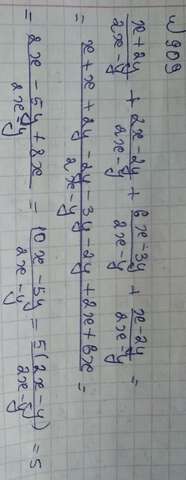 № 909
(x+2y)/(2x-y) + (2x-2y)/(2x-y) + (6x-3y)/(2x-y) + (x-2y)/(2x-y) =
= (x+x+2y-2y-3y-2y+2x+6x)/(2x-y) =
= (2x-5y+8x)/(2x-y) = (10x-5y)/(2x-y) = (5(2x-y))/(2x-y) = 5